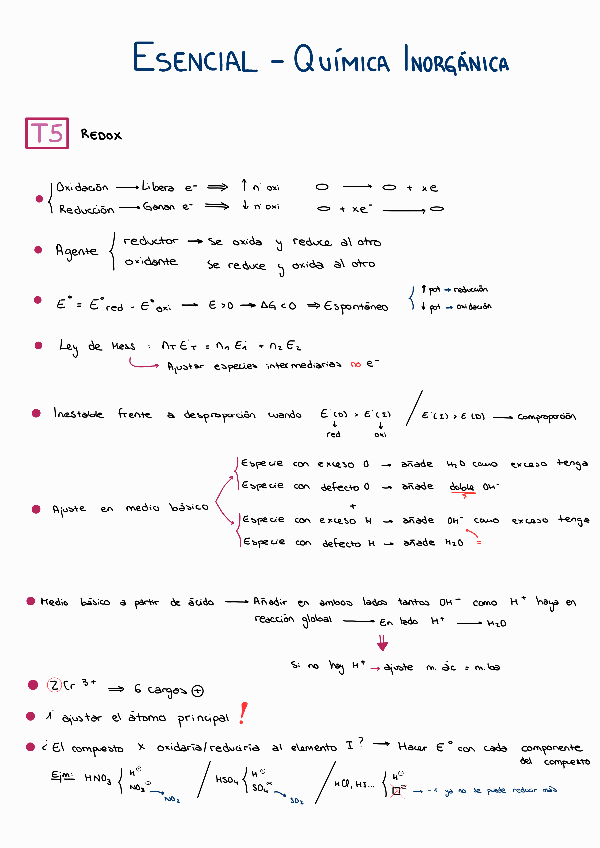 ESENCIAL - QUÍMICA INORGÁNICA
T5 REDOX
Oxidación → Libera e⁻ ⇒ ↑ nº oxi → + xe
Reducción → Ganan e⁻ ⇒ ↓ nº oxi + xe⁻ →
Agente
reductor → se oxida y reduce al otro
oxidante se reduce y oxida al otro
E° = E°red - E°oxi → E>0 → ΔG<0 ⇒ Espontáneo
↑ pot → reducción
↓ pot → oxidación
Ley de Hess : nT E°T = n1 E1° + n2 E2
Ajustar especies intermediarias no e⁻
Inestable frente a desproporción cuando E°(D) > E°(I) / E°(I) > E°(D) → comproporción
red oxi
Ajuste en medio básico
Especie con exceso O → añade H2O como exceso tenga
Especie con defecto O → añade doble OH⁻
?
+
Especie con exceso H → añade OH⁻ como exceso tenga
Especie con defecto H → añade H2O =
Medio básico a partir de ácido → Añadir en ambos lados tantos OH⁻ como H⁺ haya en
reacción global → En lado H⁺ → H2O
Si no hay H⁺ → ajuste m. ác = m. ba
2 Cr 3+ ⇒ 6 cargas ⊕
1º ajustar el átomo principal !
¿El compuesto X oxidaría/reduciría al elemento I? → Hacer E° con cada componente
del compuesto
Ejm: HNO3 { H⊕ / HSO4 { H⊕ / HCl, HI... { H⊕
NO3⊖ → NO2 SO4 → SO2 → -1 ya no se puede reducir más